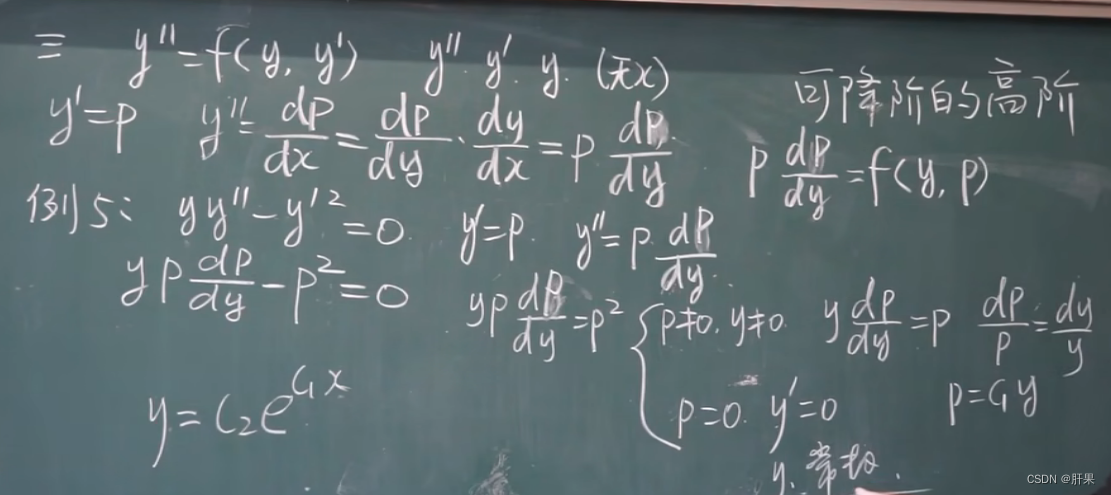 三 y''=f(y, y') y'' y' y. (无x) 可降阶的高阶
y'=p y''=dp/dx=dp/dy·dy/dx=p dp/dy p dp/dy=f(y,p)
例5: yy''-y'²=0 y'=p. y''=p dp/dy
yp dp/dy-p²=0 yp dp/dy=p² { p≠0. y≠0. y dp/dy=p dp/p=dy/y
y=C₂e^{C₁x} p=0. y'=0 p=C₁y
y. 常数.
CSDN @肝果